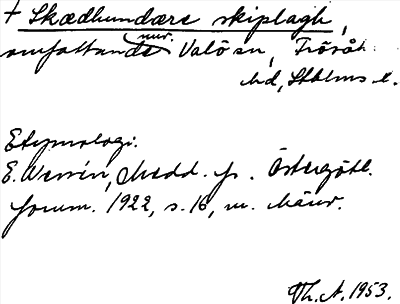 + Skædhundære skiplagh,
omfattande nuv. Valö sn, Frösåk.
hd, Sthlms l.
Etymologi:
E. Wessén, Medd. fr. Östergötl.
fornm. 1922, s. 16, m. hänv.
Th. A. 1953.